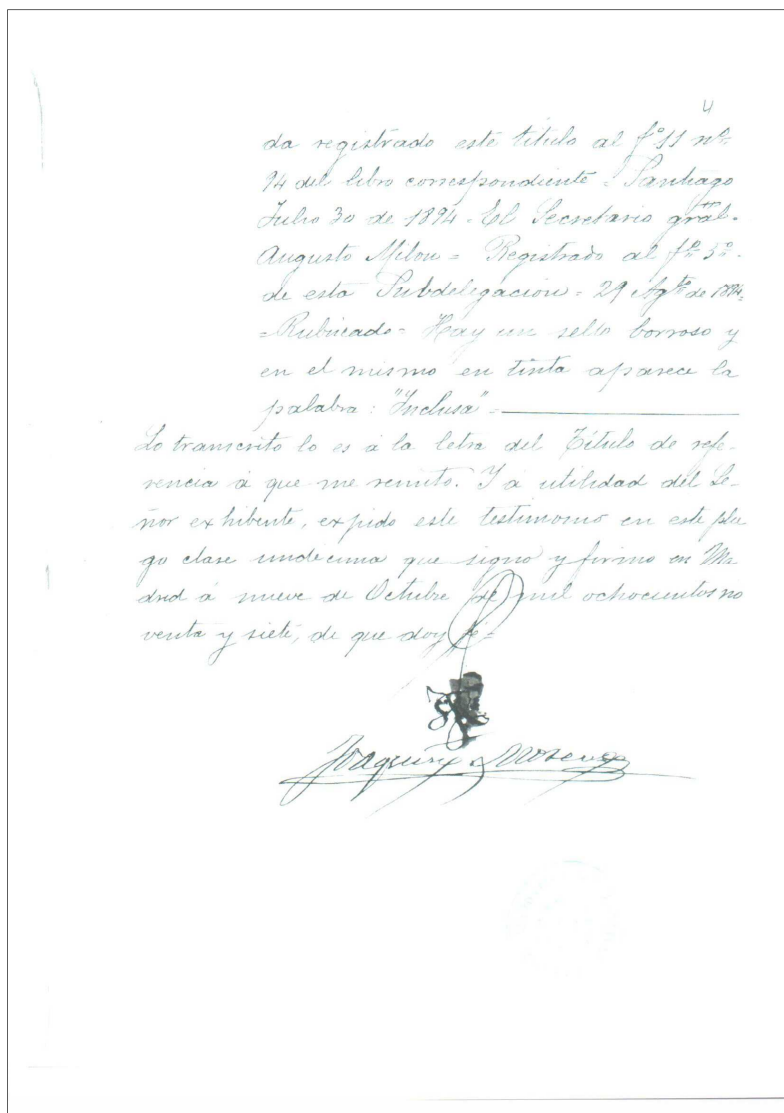 4
da registrado este título al fº 11 nº
94 del libro correspondiente = Santiago
Julio 30 de 1894 = El Secretario gral.
Augusto Milon = Registrado al fº 5º
de esta Subdelegación = 29 Agto de 1894
= Rubricado = Hay un sello borroso y
en el mismo en tinta aparece la
palabra: "Inclusa" =
Lo transcrito lo es á la letra del Título de refe-
rencia á que me remito. Y á utilidad del Se-
ñor exhibente, expido este testimonio en este plie
go clase undécima que signo y firmo en Ma
drid á nueve de Octubre de mil ochocientos no
venta y siete, de que doy fe =
Joaquín Moreno